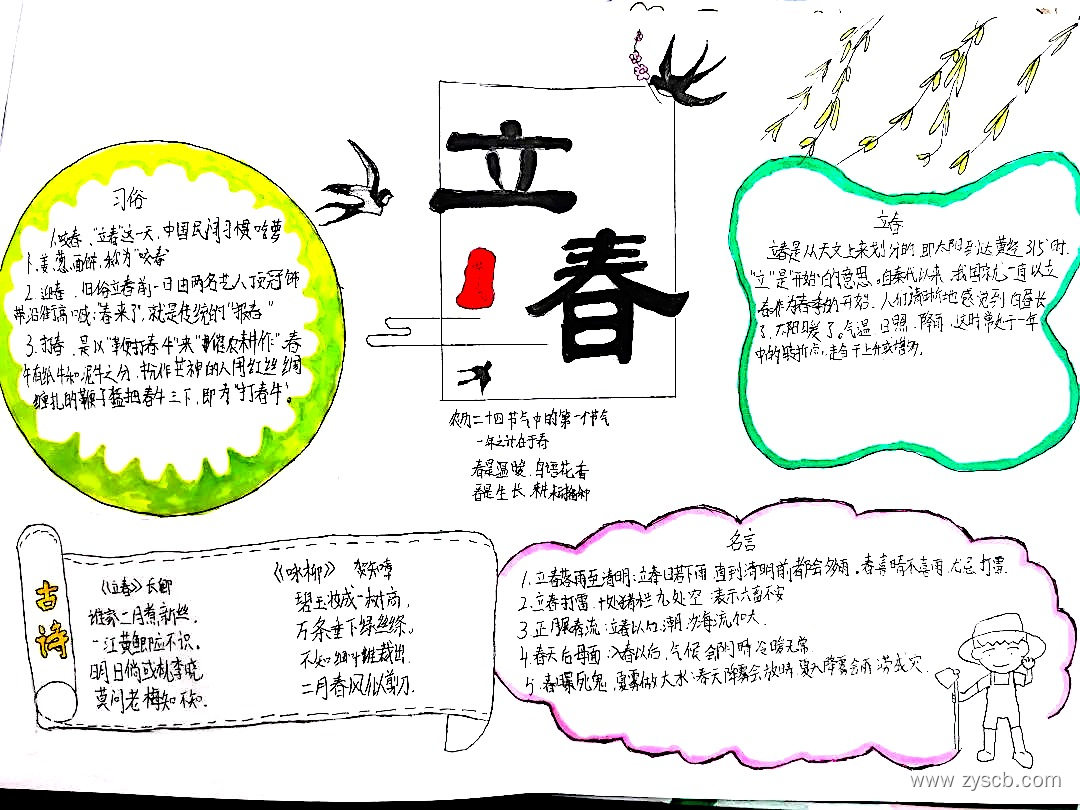 立春
习俗
1.咬春,"立春"这一天,中国民间习惯吃萝
卜、姜、葱、面饼,称为"咬春"
2.迎春,旧俗立春前一日由两名艺人顶冠饰
带沿街高喊:"春来了",就是传统的"报春"
3.打春,是以"鞭打春牛"来"催农耕作",春
牛有纸牛和泥牛之分,扮作芒神的人用红丝绸
缠扎的鞭子猛抽春牛三下,即为"打春牛"。
立春
立春是从天文上来划分的,即太阳到达黄经315°时,
"立"是"开始"的意思。自秦代以来,我国就一直以立
春作为春季的开始,人们清晰地感觉到白昼长
了,太阳暖了,气温、日照、降雨,这时常处于一年
中的转折点,趋于上升或增多。
农历二十四节气中的第一个节气
一年之计在于春
春是温暖,鸟语花香
春是生长,耕耘播种
古诗
《立春》
谁家二月煮新丝,
一江黄鲫应不识。
明日倘或桃李晓,
莫问老梅知不知。
《咏柳》 贺知章
碧玉妆成一树高,
万条垂下绿丝绦。
不知细叶谁裁出,
二月春风似剪刀。
名言
1.立春落雨至清明:立春日若下雨,直到清明前都会多雨。春喜晴不喜雨,尤忌打雷
2.立春打雷,十处猪栏九处空:表示六畜不安
3.正月
4.春天后母面:入春以后,气候 冷暖无常
5.春曝死鬼,夏雾做大水:春天降雾会放晴,夏天降雾会雨涝成灾
www.zyscb.com